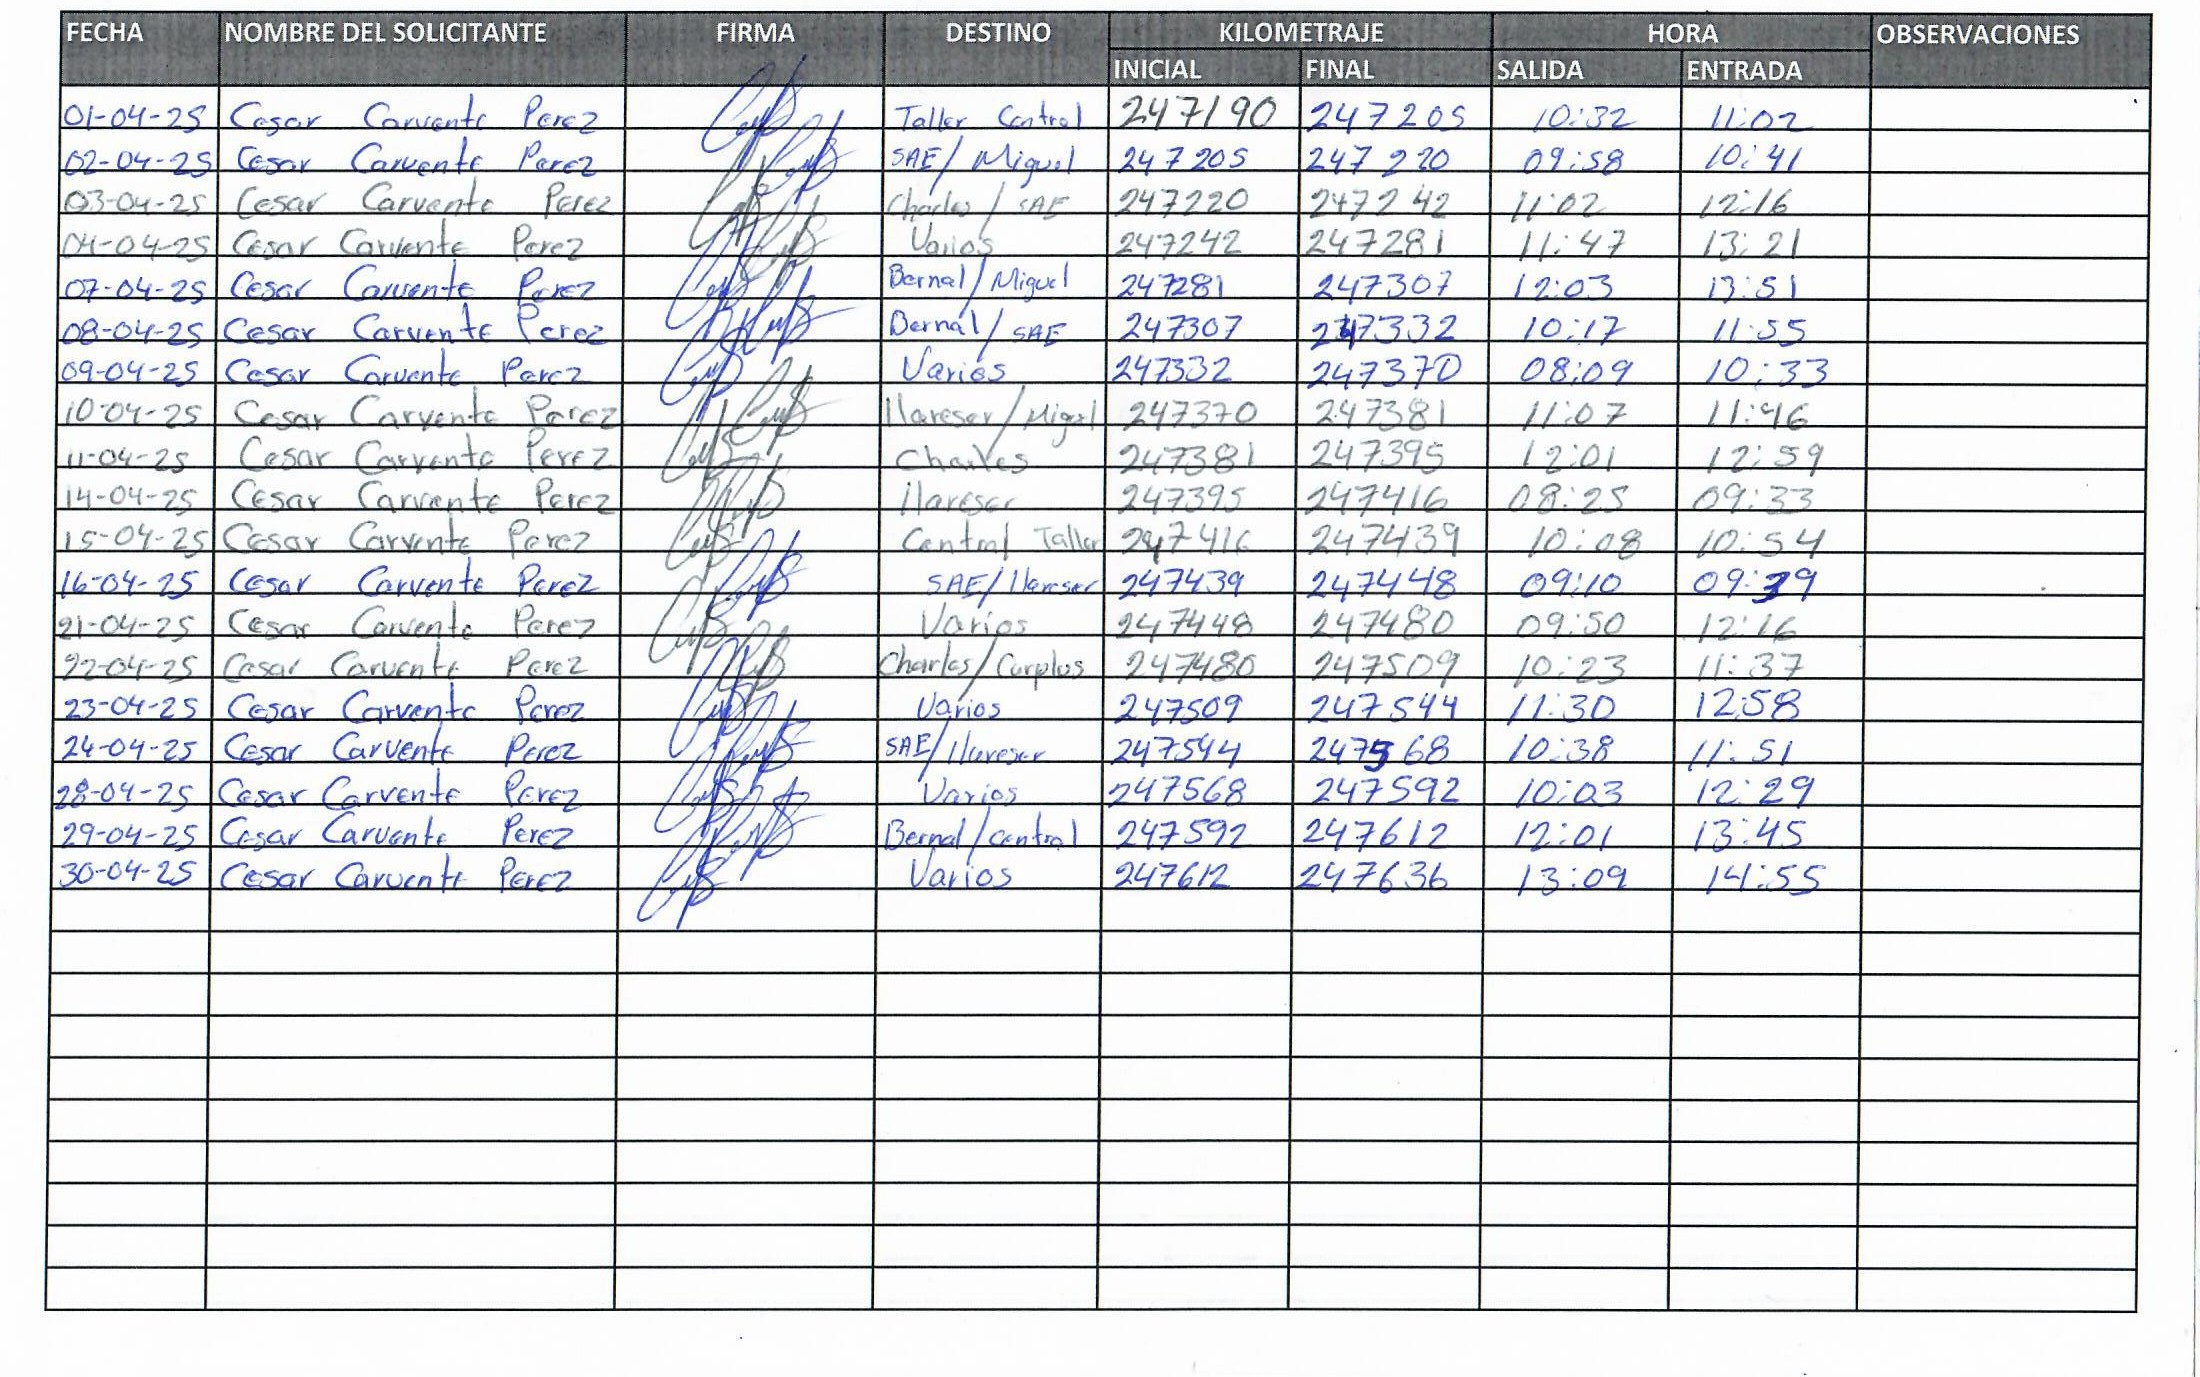 FECHA NOMBRE DEL SOLICITANTE FIRMA DESTINO KILOMETRAJE HORA OBSERVACIONES
INICIAL FINAL SALIDA ENTRADA
01-04-25 Cesar Carvente Perez Taller Central 247190 247205 10:32 11:02
02-04-25 Cesar Carvente Perez SAE/Miguel 247205 247220 09:58 10:41
03-04-25 Cesar Carvente Perez Charles/SAE 247220 247242 11:02 12:16
04-04-25 Cesar Carvente Perez Varios 247242 247281 11:47 13:21
07-04-25 Cesar Carvente Perez Bernal/Miguel 247281 247307 12:03 13:51
08-04-25 Cesar Carvente Perez Bernal/SAE 247307 247332 10:17 11:55
09-04-25 Cesar Carvente Perez Varios 247332 247370 08:09 10:33
10-04-25 Cesar Carvente Perez llareser/Miguel 247370 247381 11:07 11:46
11-04-25 Cesar Carvente Perez Charles 247381 247395 12:01 12:59
14-04-25 Cesar Carvente Perez llareser 247395 247416 08:25 09:33
15-04-25 Cesar Carvente Perez Central Taller 247416 247439 10:08 10:54
16-04-25 Cesar Carvente Perez SAE/llareser 247439 247448 09:10 09:39
21-04-25 Cesar Carvente Perez Varios 247448 247480 09:50 12:16
22-04-25 Cesar Carvente Perez Charles/Carplus 247480 247509 10:23 11:37
23-04-25 Cesar Carvente Perez Varios 247509 247544 11:30 12:58
24-04-25 Cesar Carvente Perez SAE/llareser 247544 247568 10:38 11:51
28-04-25 Cesar Carvente Perez Varios 247568 247592 10:03 12:29
29-04-25 Cesar Carvente Perez Bernal/Central 247592 247612 12:01 13:45
30-04-25 Cesar Carvente Perez Varios 247612 247636 13:09 14:55